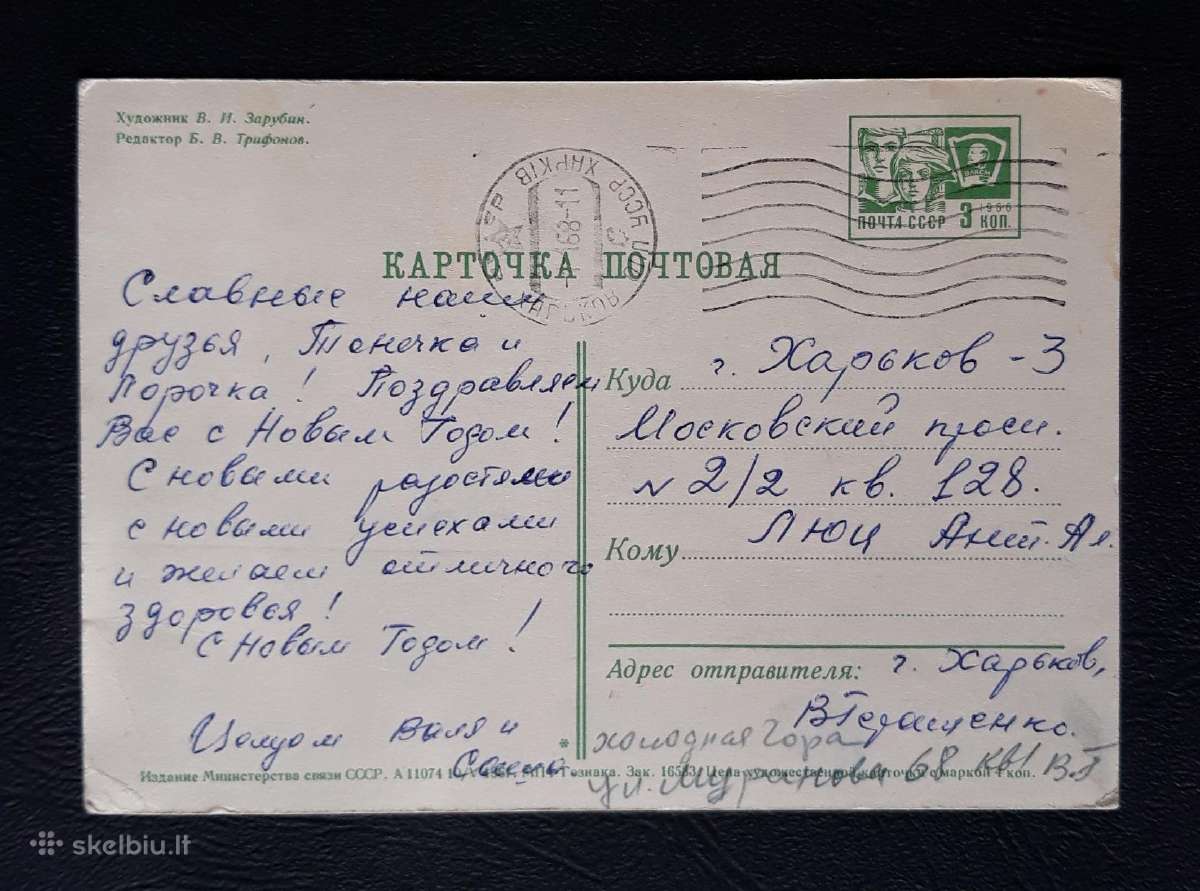 Художник В. И. Зарубин.
Редактор Б. В. Трифонов.
ВЛКСМ
1966
ПОЧТА СССР 3 КОП.
УССР ХАРКІВ
68-11
КАРТОЧКА ПОЧТОВАЯ
Славные наши
друзья, Танечка и
Лорочка! Поздравляем
Вас с Новым Годом!
С новыми радостями
с новыми успехами
и желаем отличного
здоровья!
С Новым Годом!
Целуем Валя и
Куда г. Харьков - 3
Московский просп.
N 2/2 кв. 128.
Кому Люц Ант. Ал.
Адрес отправителя: г. Харьков,
В Геращенко.
холодная гора
ул. 68 кв1 В.Г
* Издание Министерства связи СССР. А 11074 Гознака. Зак. 16583. Цена художественной карточки с маркой 4 коп.
skelbiu.lt